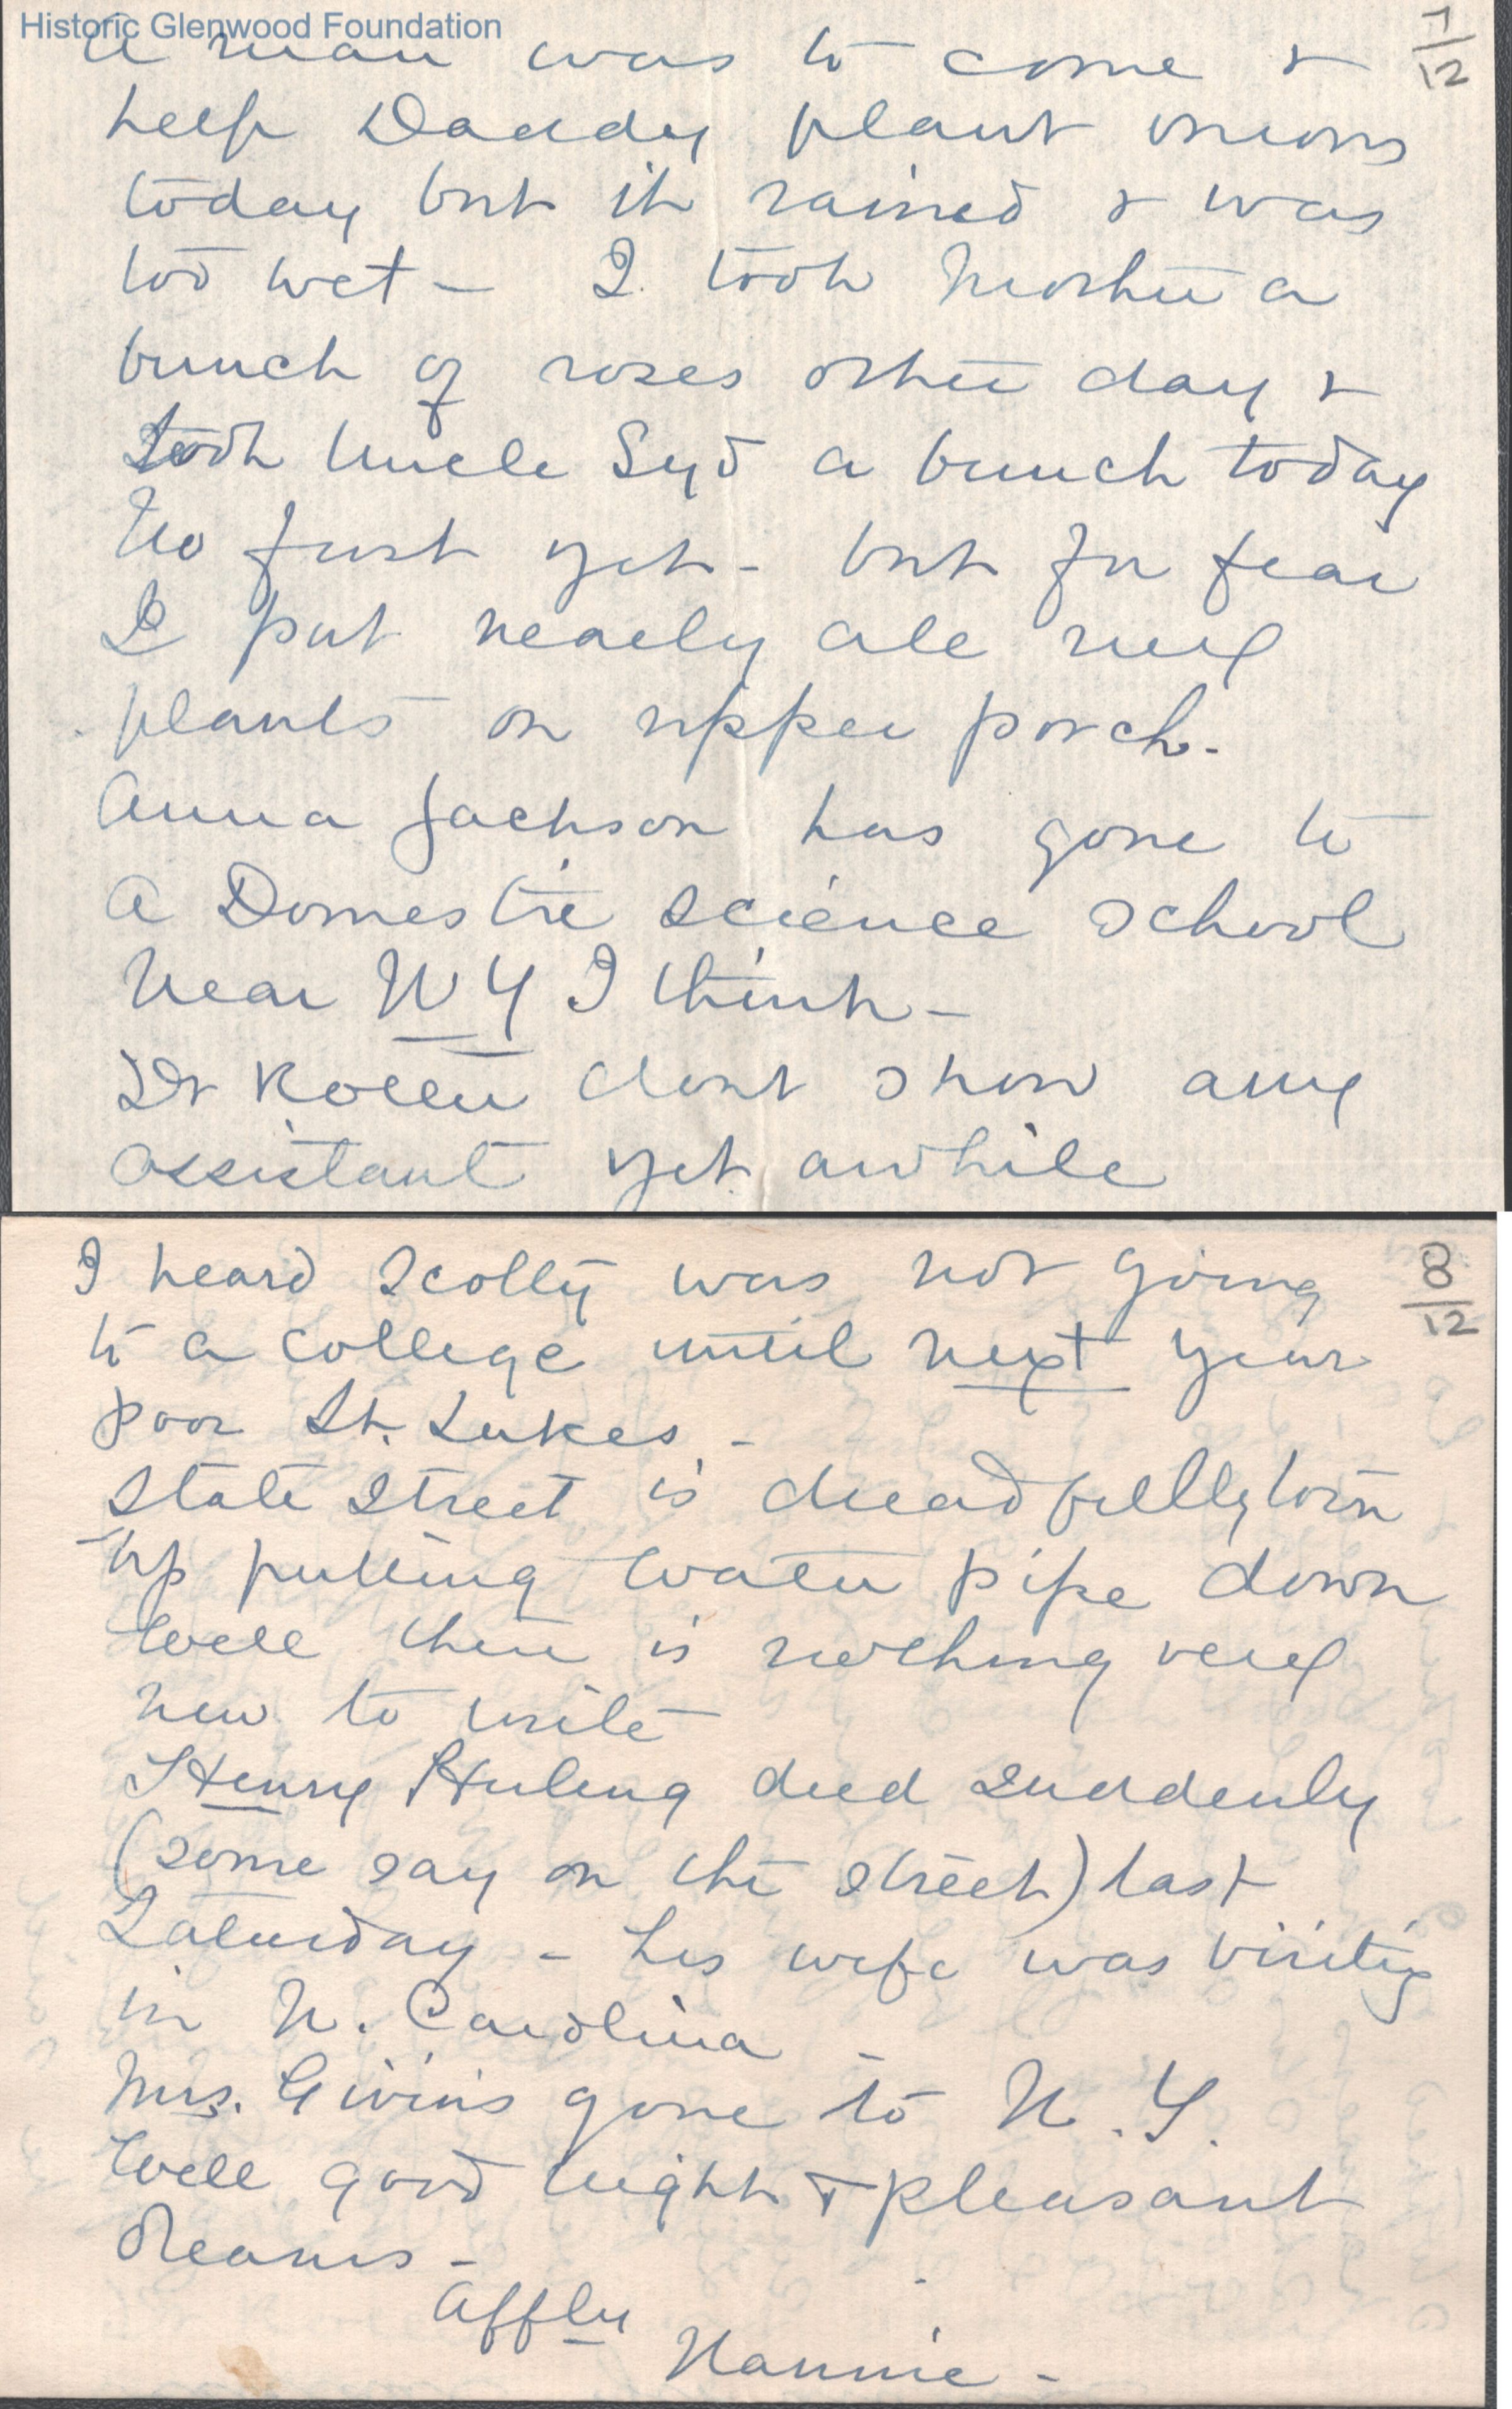 Historic Glenwood Foundation
7/12
a man was to come &
help Daddy plant onions
today but it rained & was
too wet - I took Mother a
bunch of roses other day &
took Uncle Syd a bunch today
No frost yet - but for fear
I put nearly all my
plants on upper porch.
Anna Jackson has gone to
a Domestic Science school
near N Y I think -
Dr Koller dont show any
assistant yet awhile
8/12
I heard Scotty was not going
to a college until next year
poor St. Lukes -
State Street is dreadfully torn
up putting water pipe down
Well there is nothing very
new to write
Henry Huling died suddenly
(some say on the street) last
Saturday - his wife was visiting
in N. Carolina -
Mrs. Givins gone to N. Y.
Well good night & pleasant
dreams -
Affly
Nannie -